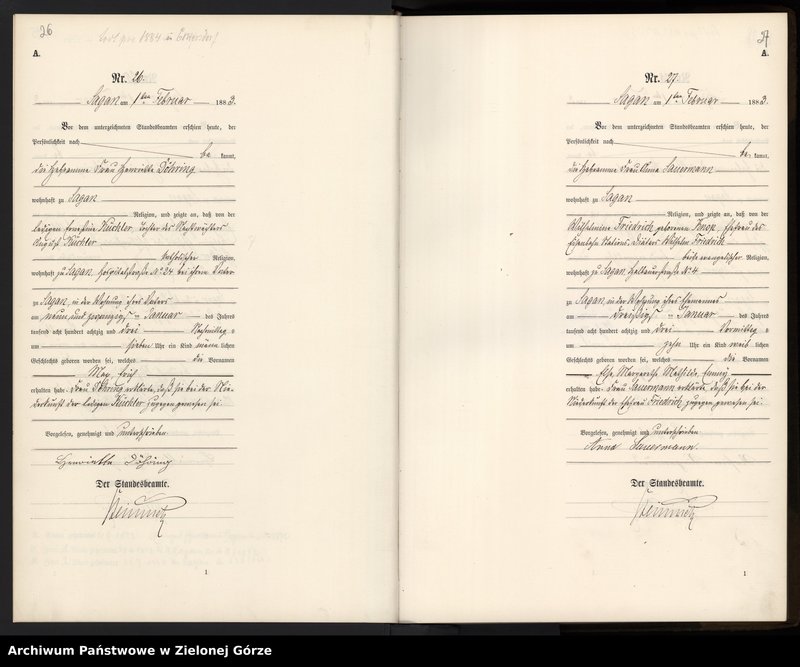 26
A.
Nr. 26.
Sagan am 1ten Februar 1883.
Vor dem unterzeichneten Standesbeamten erschien heute, der
Persönlichkeit nach
be kannt,
die Hebamme Frau Henriette Döhring
wohnhaft zu Sagan
Religion, und zeigte an, daß von der
ledigen Ernestine Küchler, Tochter des
August Küchler
katholischer Religion,
wohnhaft zu Sagan, Hospitalstraße No 24 bei ihrem Vater
zu Sagan, in der Wohnung ihres Vaters
am neun und zwanzigsten Januar des Jahres
tausend acht hundert achtzig und drei Nachmittags
um sieben Uhr ein Kind männlichen
Geschlechts geboren worden sei, welches die Vornamen
Max Erich
erhalten habe. Frau Döhring erklärte, daß sie bei der Nie-
derkunft der ledigen Küchler zugegen gewesen sei.
Vorgelesen, genehmigt und unterschrieben
Henriette Döhring
Der Standesbeamte.
1
27
A.
Nr. 27.
Sagan am 1ten Februar 1883.
Vor dem unterzeichneten Standesbeamten erschien heute, der
Persönlichkeit nach
be kannt,
die Hebamme Frau Anna Sauermann
wohnhaft zu Sagan
Religion, und zeigte an, daß von der
Wilhelmine Friedrich geborenen Knop, Ehefrau des
Eisenbahn Stations-Diätars Wilhelm Friedrich
beide evangelischer Religion,
wohnhaft zu Sagan, Halbauerstraße No 4
zu Sagan, in der Wohnung ihres Ehemannes
am dreißigsten Januar des Jahres
tausend acht hundert achtzig und drei Vormittags
um zehn Uhr ein Kind weiblichen
Geschlechts geboren worden sei, welches die Vornamen
Else Margareth Mathilde Emmy
erhalten habe. Frau Sauermann erklärte, daß sie bei der
Niederkunft der Ehefrau Friedrich zugegen gewesen sei.
Vorgelesen, genehmigt und unterschrieben
Anna Sauermann.
Der Standesbeamte.
1
Archiwum Państwowe w Zielonej Górze